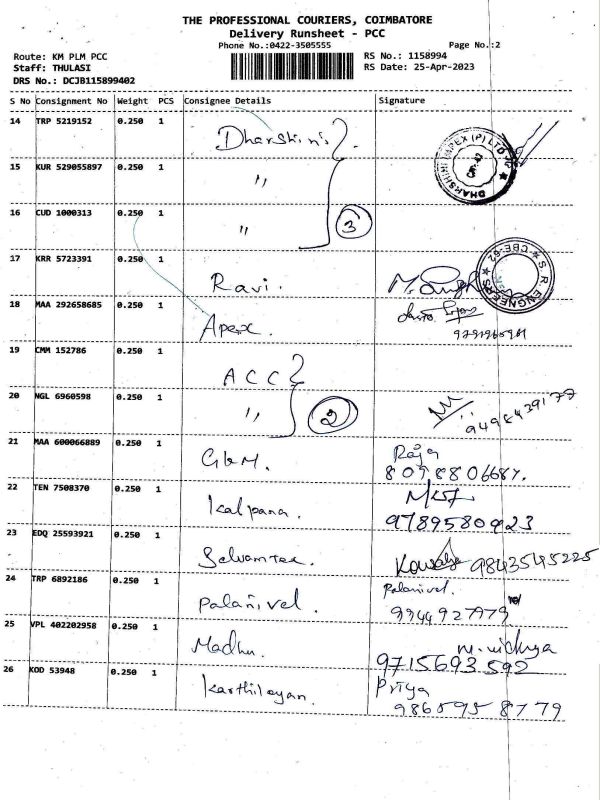 THE PROFESSIONAL COURIERS, COIMBATORE
Delivery Runsheet - PCC
Phone No.:0422-3505555 Page No.:2
Route: KM PLM PCC RS No.: 1158994
Staff: THULASI RS Date: 25-Apr-2023
DRS No.: DCJB115899402
S No Consignment No Weight PCS Consignee Details Signature
14 TRP 5219152 0.250 1 Dharshini
DHARSHINI APEX (P) LTD
15 KUR 529055897 0.250 1 "
16 CUD 1000313 0.250 1 " 3
17 KRR 5723391 0.250 1 Ravi.
S. R. ENGNEERS CBE-62
18 MAA 292658685 0.250 1 Apex.
19 CMM 152786 0.250 1 ACC
20 NGL 6960598 0.250 1 " 2 9498439177
21 MAA 600066889 0.250 1 GKM. Raja
22 TEN 7508370 0.250 1 Kalpana.
9789580923
23 EDQ 25593921 0.250 1 Selvamtex. 9843545225
24 TRP 6892186 0.250 1 Palanivel. Palanivel.
9944927979
25 VPL 402202958 0.250 1 Madhu. M. Vidhya
9715693592
26 KOD 53948 0.250 1 Karthikeyan. Priya
9865958779